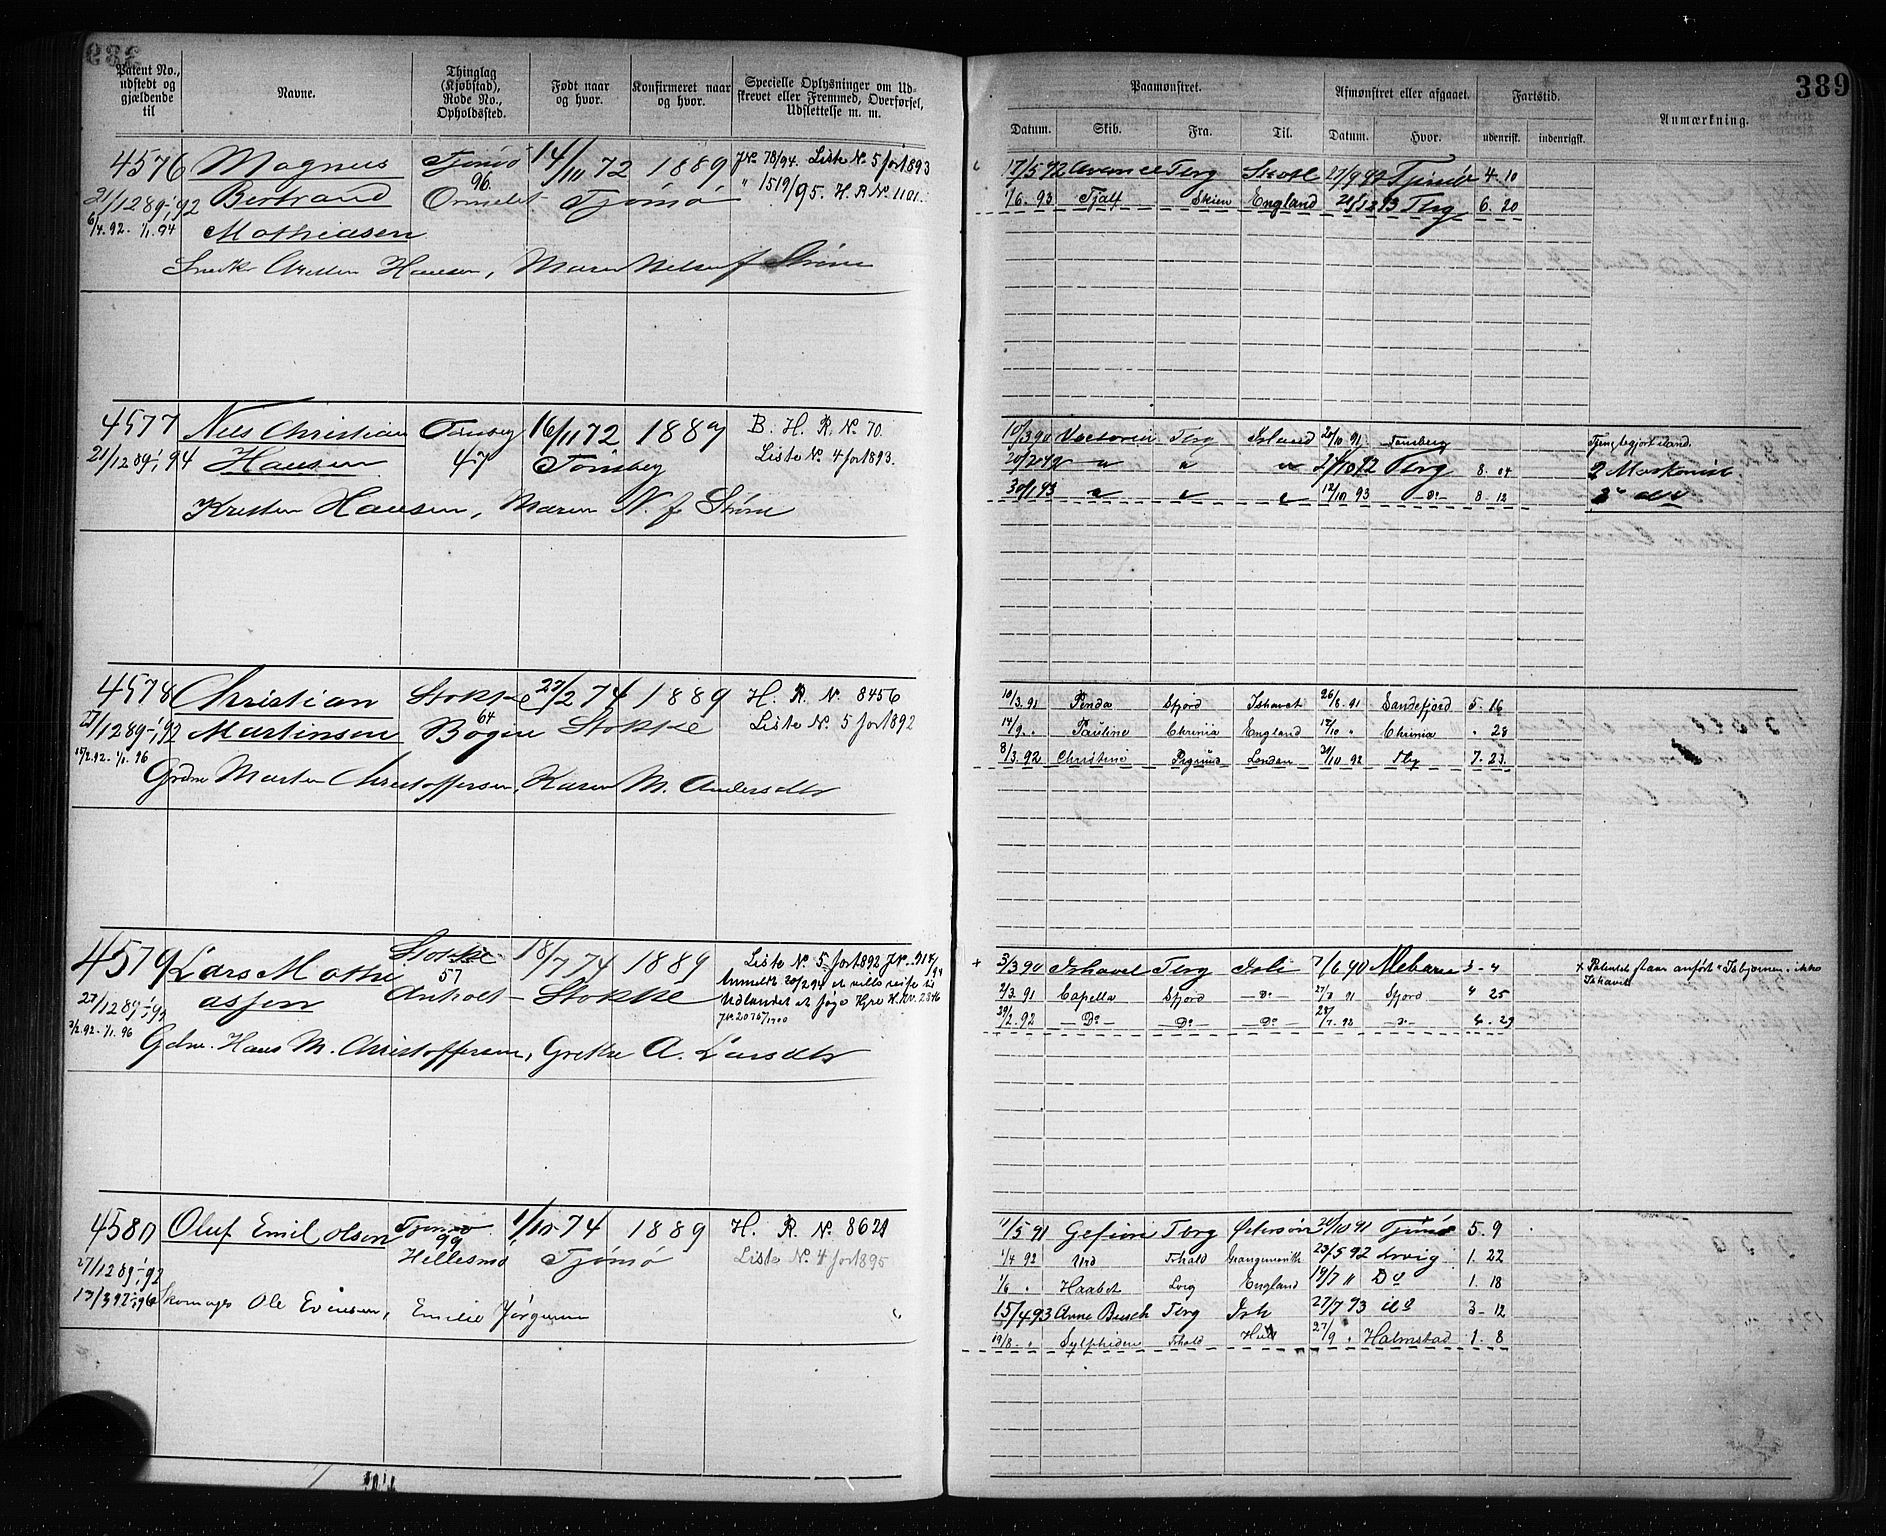 389
Patent No., udstedt og gjældende til
Navne.
Thinglag (Kjøbstad), Rode No., Opholdssted.
Født naar og hvor.
Konfirmeret naar og hvor.
Specielle Oplysninger om Udskrevet eller Fremmed, Overførsel, Udslettelse m. m.
Paamønstret.
Afmønstret eller afgaaet.
Fartstid.
Anmærkning.
Datum. Skib. Fra. Til. Datum. Hvor. udenrigsk. indenrigsk.
4576 Magnus Tjømø 14/10 72 1889 J.№ 78/94. Liste №. 5 for 1893
Bertrand 96. Tjømø " 1519/95. H. R № 1101.
21/12 89-1/1 92
6/4.92. 1/1.94 Mathiasen
17/5 92 Tbrg 4 10
1/6. 93 Tjalf Skien England 21/12 93 Tbrg 6. 20
4577 Nils Christian Tønsberg 16/11 72 1889 B. H. R. №. 70.
21/12 89-1/1 94 Hansen 47 Tønsberg Liste №. 4 for 1893.
Kristen Hansen, Maren N. f. Strøm
10/3 90 Tbrg Island 20/10 91 Tønsberg
20/2 92 " " " 21/10 92 Tbrg 8. 04
30/1 93 " " " 12/10 93 Do 8-12
4578 Christian Stokke 27/2 74 1889 H. R. №. 8456
27/12 89-1/1 92 Martinsen 64 Bogen Stokke Liste №. 5 for 1892
15/2.92. 1/1. 96
Grdm. Martin Christoffersen, Karen M. Andersdtr
10/3.91 Penda Sfjord Ishavet 26/8. 91 Sandefjord 5. 16
14/9. " Pauline Chrinia England 12/10 " Chrinia " 28
8/3.92 Christine London 20/10 92 Tbg 7. 23.
4579 Lars Mathi Stokke 18/7 74 1889 Liste №. 5 for 1892
assen 57 Anholt Stokke
27/12 89-1/1 92
3/2.92. 1/1. 96
Gdm. Hans M. Christoffersen, Grethe A. Larsdtr
+ 3/3 90 Ishavet Tbrg Ish 7/6 90 3-4 + Patentet staar anført "Isbjørnen" ikke Ishavet
2/3. 91 Capella Sfjord Do 27/8 91 Sfjord 4 25
29/2.92 Do Do Do 28/7.92 4. 29
4580 Oluf Emil Olsen Tjømø 1/10 74 1889 H. R. №. 8621
99 Hillesmo Tjømø Liste №. 4 for 1895
27/12 89-1/1 92
Skomager Ole Evensen, Emilie Jørgensen
11/5 91 Gefion Tbrg 20/10 91 Tjømø 5. 9
1/4 92 Urd Fhald Grangemouth 23/5 92 Lrvig 1. 22
1/6 " Haabet Lvrg England 19/7 " Do 1. 18
15/4 93 Anne Busch Tbrg Ish 27/7 93 3-12
19/8 " Sylphiden Fhald Hull 27/9 " Halmstad 1. 8